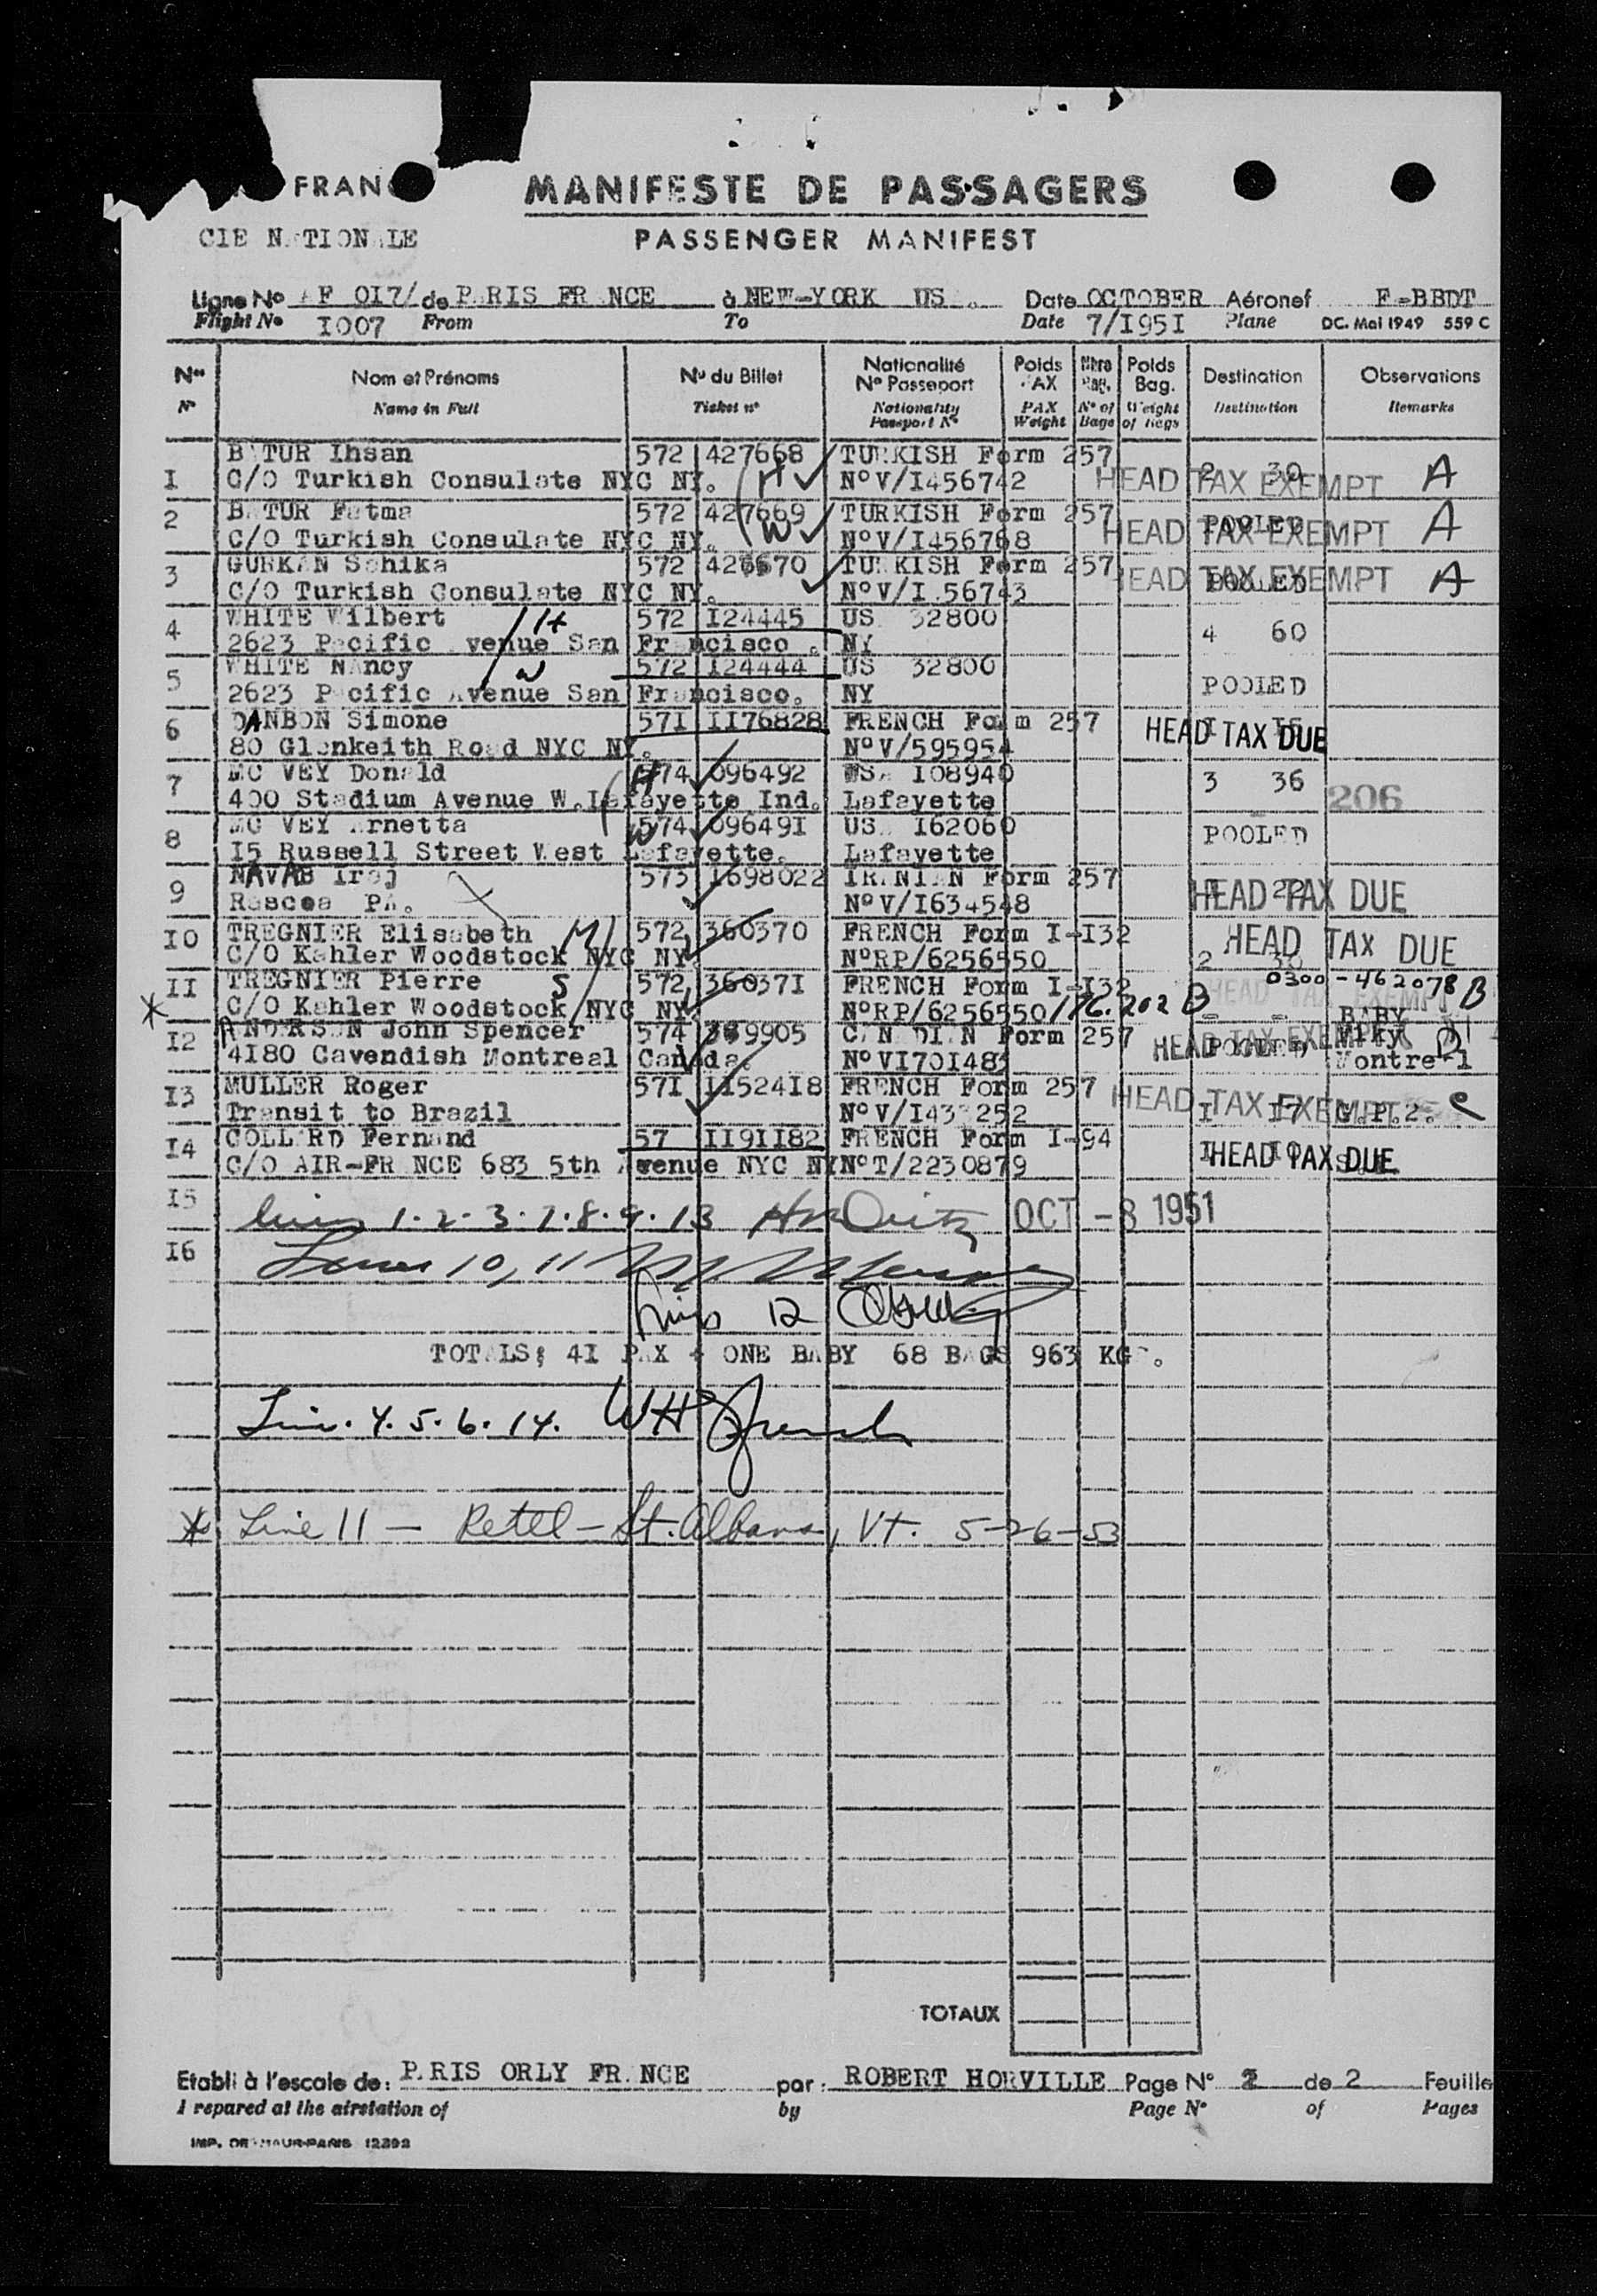 FRAN
MANIFESTE DE PASSAGERS
CIE NATIONALE
PASSENGER MANIFEST
Ligne No AF 017/ de PARIS FRANCE à NEW-YORK USA. Date OCTOBER Aéronef F-BBDT
Flight No I007 From To Date 7/I95I Plane DC. Mai 1949 559 C
Nos Nom et Prénoms No du Billet Nationalité No Passeport Poids PAX Nbre Bag. Poids Bag. Destination Observations
No Name in Full Ticket no Nationality Passport No PAX Weight No of Bags Weight of Bags Destination Remarks
BATUR Ihsan 572 427668 TURKISH Form 257
I C/O Turkish Consulate NYC NY. H NoV/I456742 2 30 HEAD TAX EXEMPT A
2 BATUR Fatma 572 427669 TURKISH Form 257
C/O Turkish Consulate NYC NY. W NoV/I456768 POOLED HEAD TAX EXEMPT A
3 GURKAN Sahika 572 426670 TURKISH Form 257
C/O Turkish Consulate NYC NY. NoV/I456743 POOLED HEAD TAX EXEMPT A
4 WHITE Wilbert H 572 I24445 USA 32800
2623 Pacific Avenue San Francisco. NY 4 60
5 WHITE NAncy W 572 I24444 US 32800
2623 Pacific Avenue San Francisco. NY POOLED
6 DANBON Simone 57I II76828 FRENCH Form 257 I I5 HEAD TAX DUE
80 Glenkeith Road NYC NY. NoV/595954
7 MC VEY Donald H 574 096492 USA I08940
400 Stadium Avenue W.Lafayette Ind. Lafayette 3 36 206
8 MC VEY Arnetta W 574 09649I USA I62060
I5 Russell Street West Lafayette. Lafayette POOLED
9 NAVAB Iraj 573 I698022 IRANIAN Form 257
Roscoe PA. NoV/I634548 I 22 HEAD TAX DUE
I0 TREGNIER Elisabeth M 572 360370 FRENCH Form I-I32
C/O Kahler Woodstock NYC NY. NoRP/6256550 2 30 HEAD TAX DUE
II TREGNIER Pierre S 572 36037I FRENCH Form I-I32 0300-462078 B
* C/O Kahler Woodstock NYC NY. NoRP/6256550 176.202 B - - BABY HEAD TAX EXEMPT
I2 ANDERSON John Spencer 574 369905 CANADIAN Form 257
4I80 Cavendish Montreal Canada. NoVI70I485 POOLED HEAD TAX EXEMPT Montreal
I3 MULLER Roger 57I II524I8 FRENCH Form 257
Transit to Brazil NoV/I433252 I I7 G.P.2. HEAD TAX EXEMPT C
I4 COLLARD Fernand 57 II9II82 FRENCH Form I-94
C/O AIR-FRANCE 683 5th Avenue NYC NY NoT/2230879 I HEAD TAX DUE
I5 lines 1.2.3.7.8.9.13 OCT - 8 1951
I6 Lines 10, 11
lines 12
TOTALS: 4I PAX + ONE BABY 68 BAGS 963 KGS.
Lin. 4.5.6.14. WH French
* Line 11 — Retel - St. Albans, Vt. 5-26-53
TOTAUX
Etabli à l'escale de: PARIS ORLY FRANCE par: ROBERT HORVILLE Page No 2 de 2 Feuille
Prepared at the airstation of by Page No of Pages
IMP. PARIS 12392